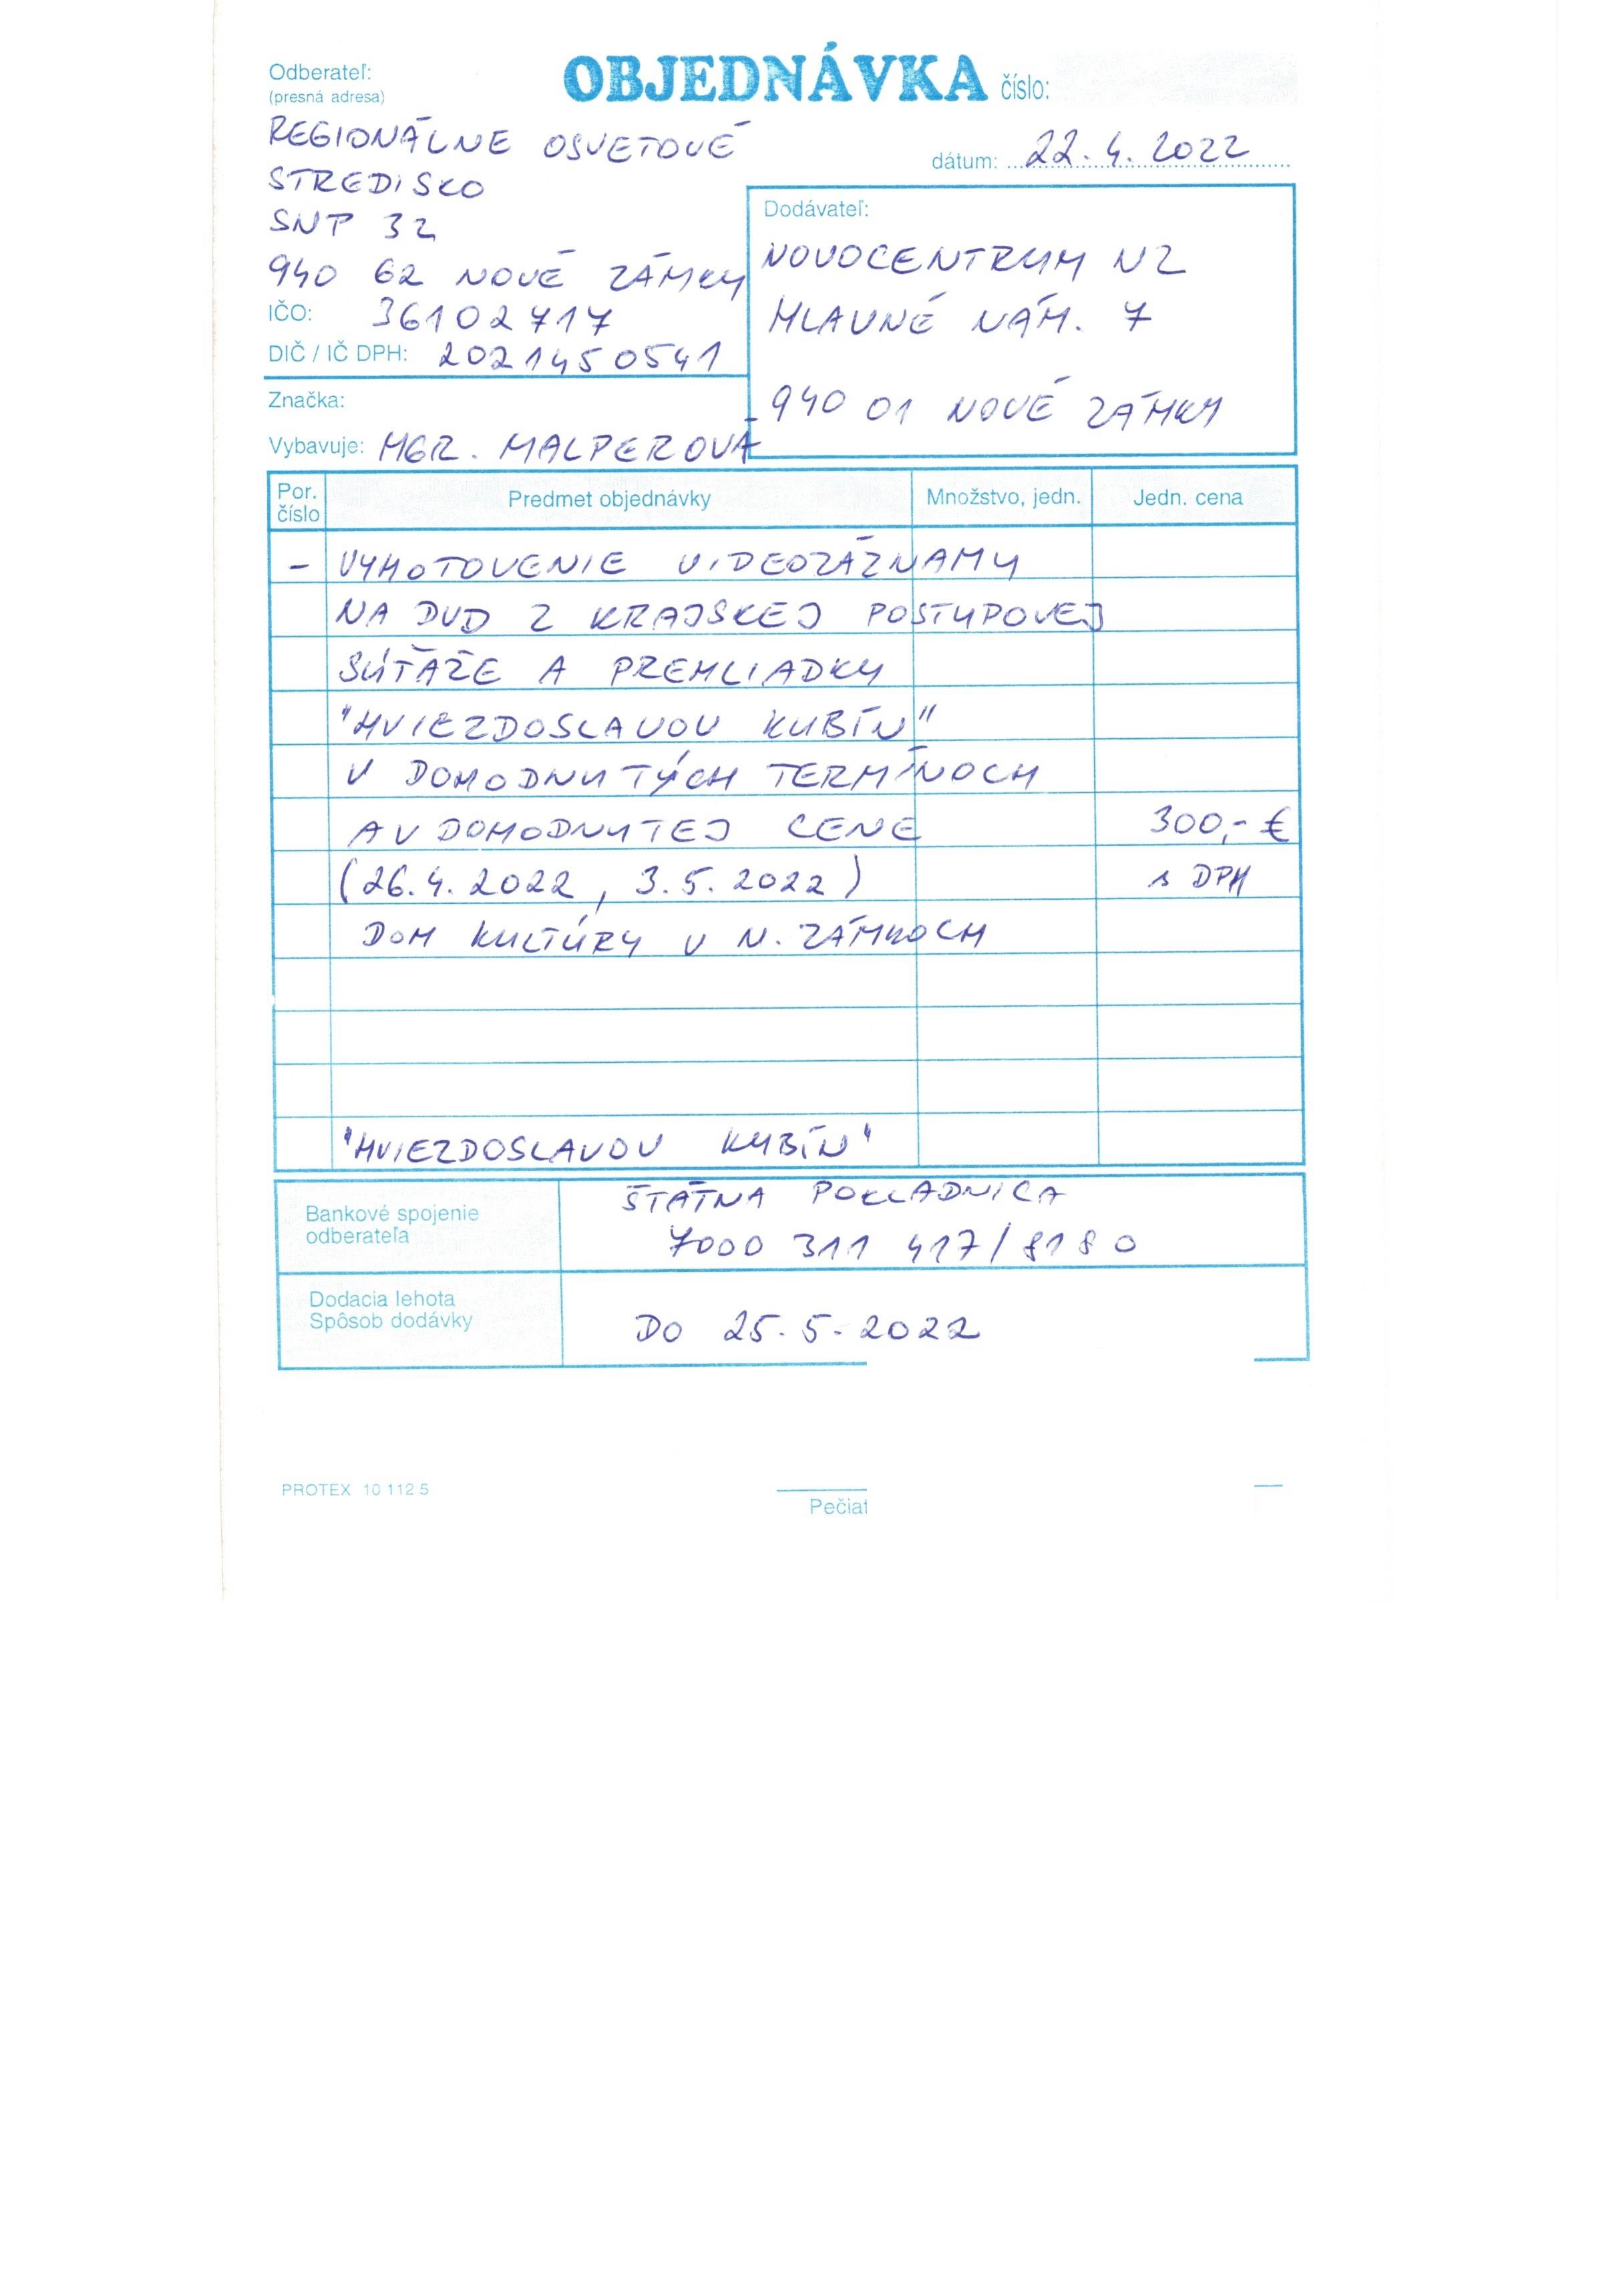 Odberateľ:
(presná adresa)
OBJEDNÁVKA číslo:
REGIONÁLNE OSVETOVÉ
STREDISKO
SNP 32
940 62 NOVÉ ZÁMKY
IČO: 36102717
DIČ / IČ DPH: 2021450541
Značka:
Vybavuje: MGR. MALPEROVÁ
dátum: 22.4.2022
Dodávateľ:
NOVOCENTRUM NZ
HLAVNÉ NÁM. 7
940 01 NOVÉ ZÁMKY
Por. číslo Predmet objednávky Množstvo, jedn. Jedn. cena
– VYHOTOVENIE VIDEOZÁZNAMU
NA DVD Z KRAJSKEJ POSTUPOVEJ
SÚŤAŽE A PREHLIADKY
"HVIEZDOSLAVOV KUBÍN"
V DOHODNUTÝCH TERMÍNOCH
A V DOHODNUTEJ CENE 300,- €
(26.4.2022, 3.5.2022) s DPH
DOM KULTÚRY V N. ZÁMKOCH
"HVIEZDOSLAVOV KUBÍN"
Bankové spojenie
odberateľa
ŠTÁTNA POKLADNICA
7000 311 417/8180
Dodacia lehota
Spôsob dodávky
DO 25.5.2022
PROTEX 10 112 5
Pečiat